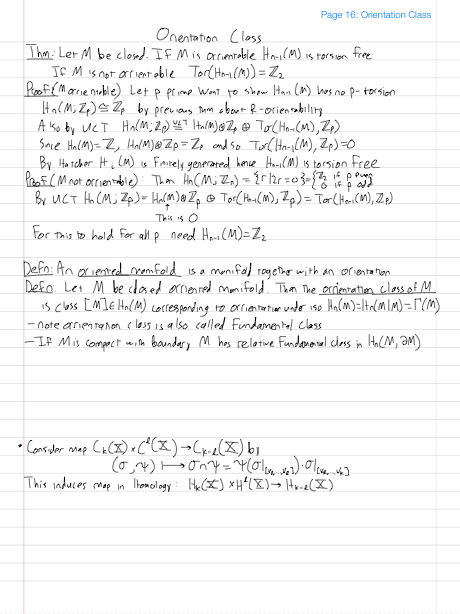 Page 16: Orientation Class
Orientation Class
Thm: Let M be closed. If M is orrientable Hn-1(M) is torsion free
If M is not orrientable Tor(Hn-1(M)) = ℤ2
Proof (M orrientable) Let p prime. Want to show Hn-1(M) has no p-torsion
Hn(M;ℤp) ≅ ℤp by previous thm about R-orientability
Also by UCT Hn(M;ℤp) ≅ Hn(M)⊗ℤp ⊕ Tor(Hn-1(M), ℤp)
Since Hn(M)=ℤ, Hn(M)⊗ℤp = ℤp and so Tor(Hn-1(M), ℤp) = 0
By Hatcher Hi(M) is finitely generated hence Hn-1(M) is torsion free
Proof (M not orrientable): Then Hn(M;ℤn) = {r | 2r = 0} = {ℤ2 if p even
0 if p odd
By UCT Hn(M;ℤp) = Hn(M)⊗ℤp ⊕ Tor(Hn-1(M), ℤp) = Tor(Hn-1(M), ℤp)
This is 0
For this to hold for all p need Hn-1(M) = ℤ2
Defn: An oriented manifold is a manifold together with an orientation
Defn: Let M be closed orriented manifold. Then the orrientation class of M
is class [M] ∈ Hn(M) corresponding to orrientation under iso Hn(M) = Hn(M|M) = Γ(M)
- note orrientation class is also called Fundamental Class
- If M is compact with boundary M has relative Fundamental class in Hn(M, ∂M)
• Consider map Ck(X) × Cℓ(X) → Ck-ℓ(X) by
(σ, ψ) ↦ σ∩ψ = ψ(σ|[v0,...,vℓ]) · σ|[vℓ,...,vk]
This induces map in Homology: Hk(X) × Hℓ(X) → Hk-ℓ(X)